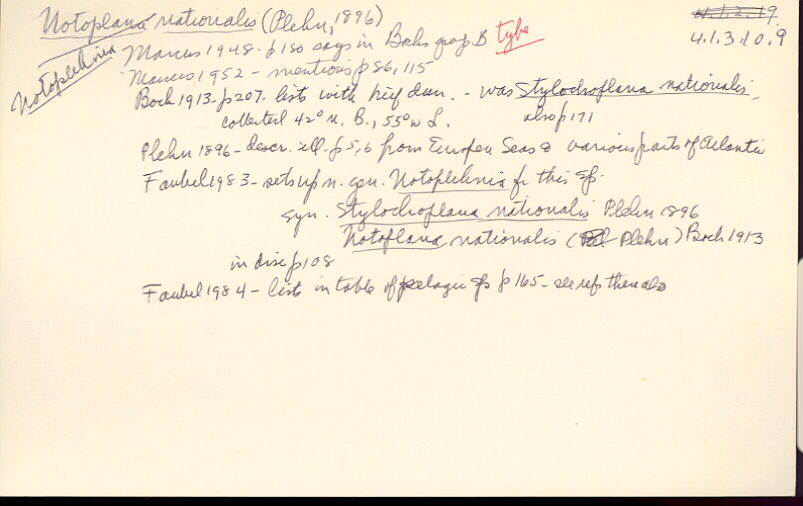 Notoplana nationalis (Plehn, 1896)
4.1.2.19
4.1.3.10.9
Notoplehnia
type
Marcus 1948 - p 180 says in Bocks group B
Marcus 1952 - mentions p 86, 115
Bock 1913 - p 207 - lists with brief descr. - was Stylochoplana nationalis,
collected 42° n. B., 55° w L. also p 171
Plehn 1896 - descr. ill. p 5, 6 from European Seas & various parts of Atlantic
Faubel 1983 - sets up n. gen. Notoplehnia for this sp.
syn. Stylochoplana nationalis Plehn 1896
Notoplana nationalis (Plehn) Bock 1913
in disc p 108
Faubel 1984 - lists in table of pelagic sps p 165 - see refs there also